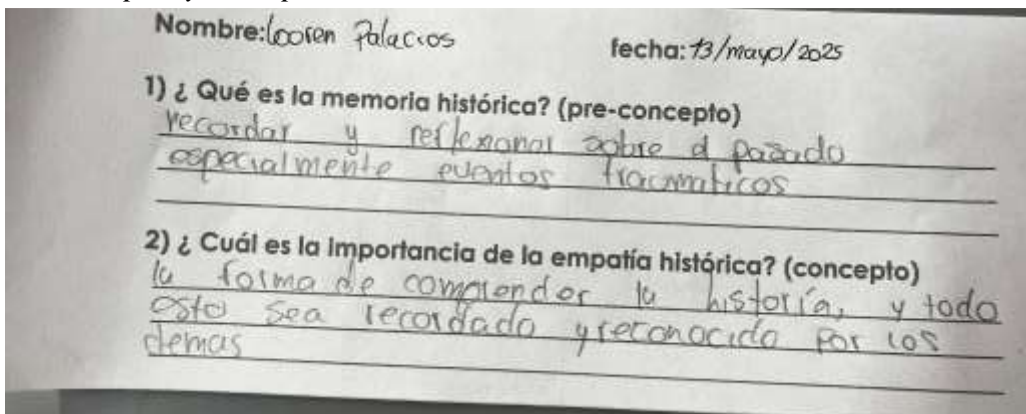 Nombre: Looren Palacios
fecha: 13/mayo/2025
1) ¿ Qué es la memoria histórica? (pre-concepto)
recordar y reflexionar sobre el pasado
especialmente eventos traumaticos
2) ¿ Cuál es la importancia de la empatía histórica? (concepto)
la forma de comprender la historía, y todo
esto sea recordado y reconocido por los
demas